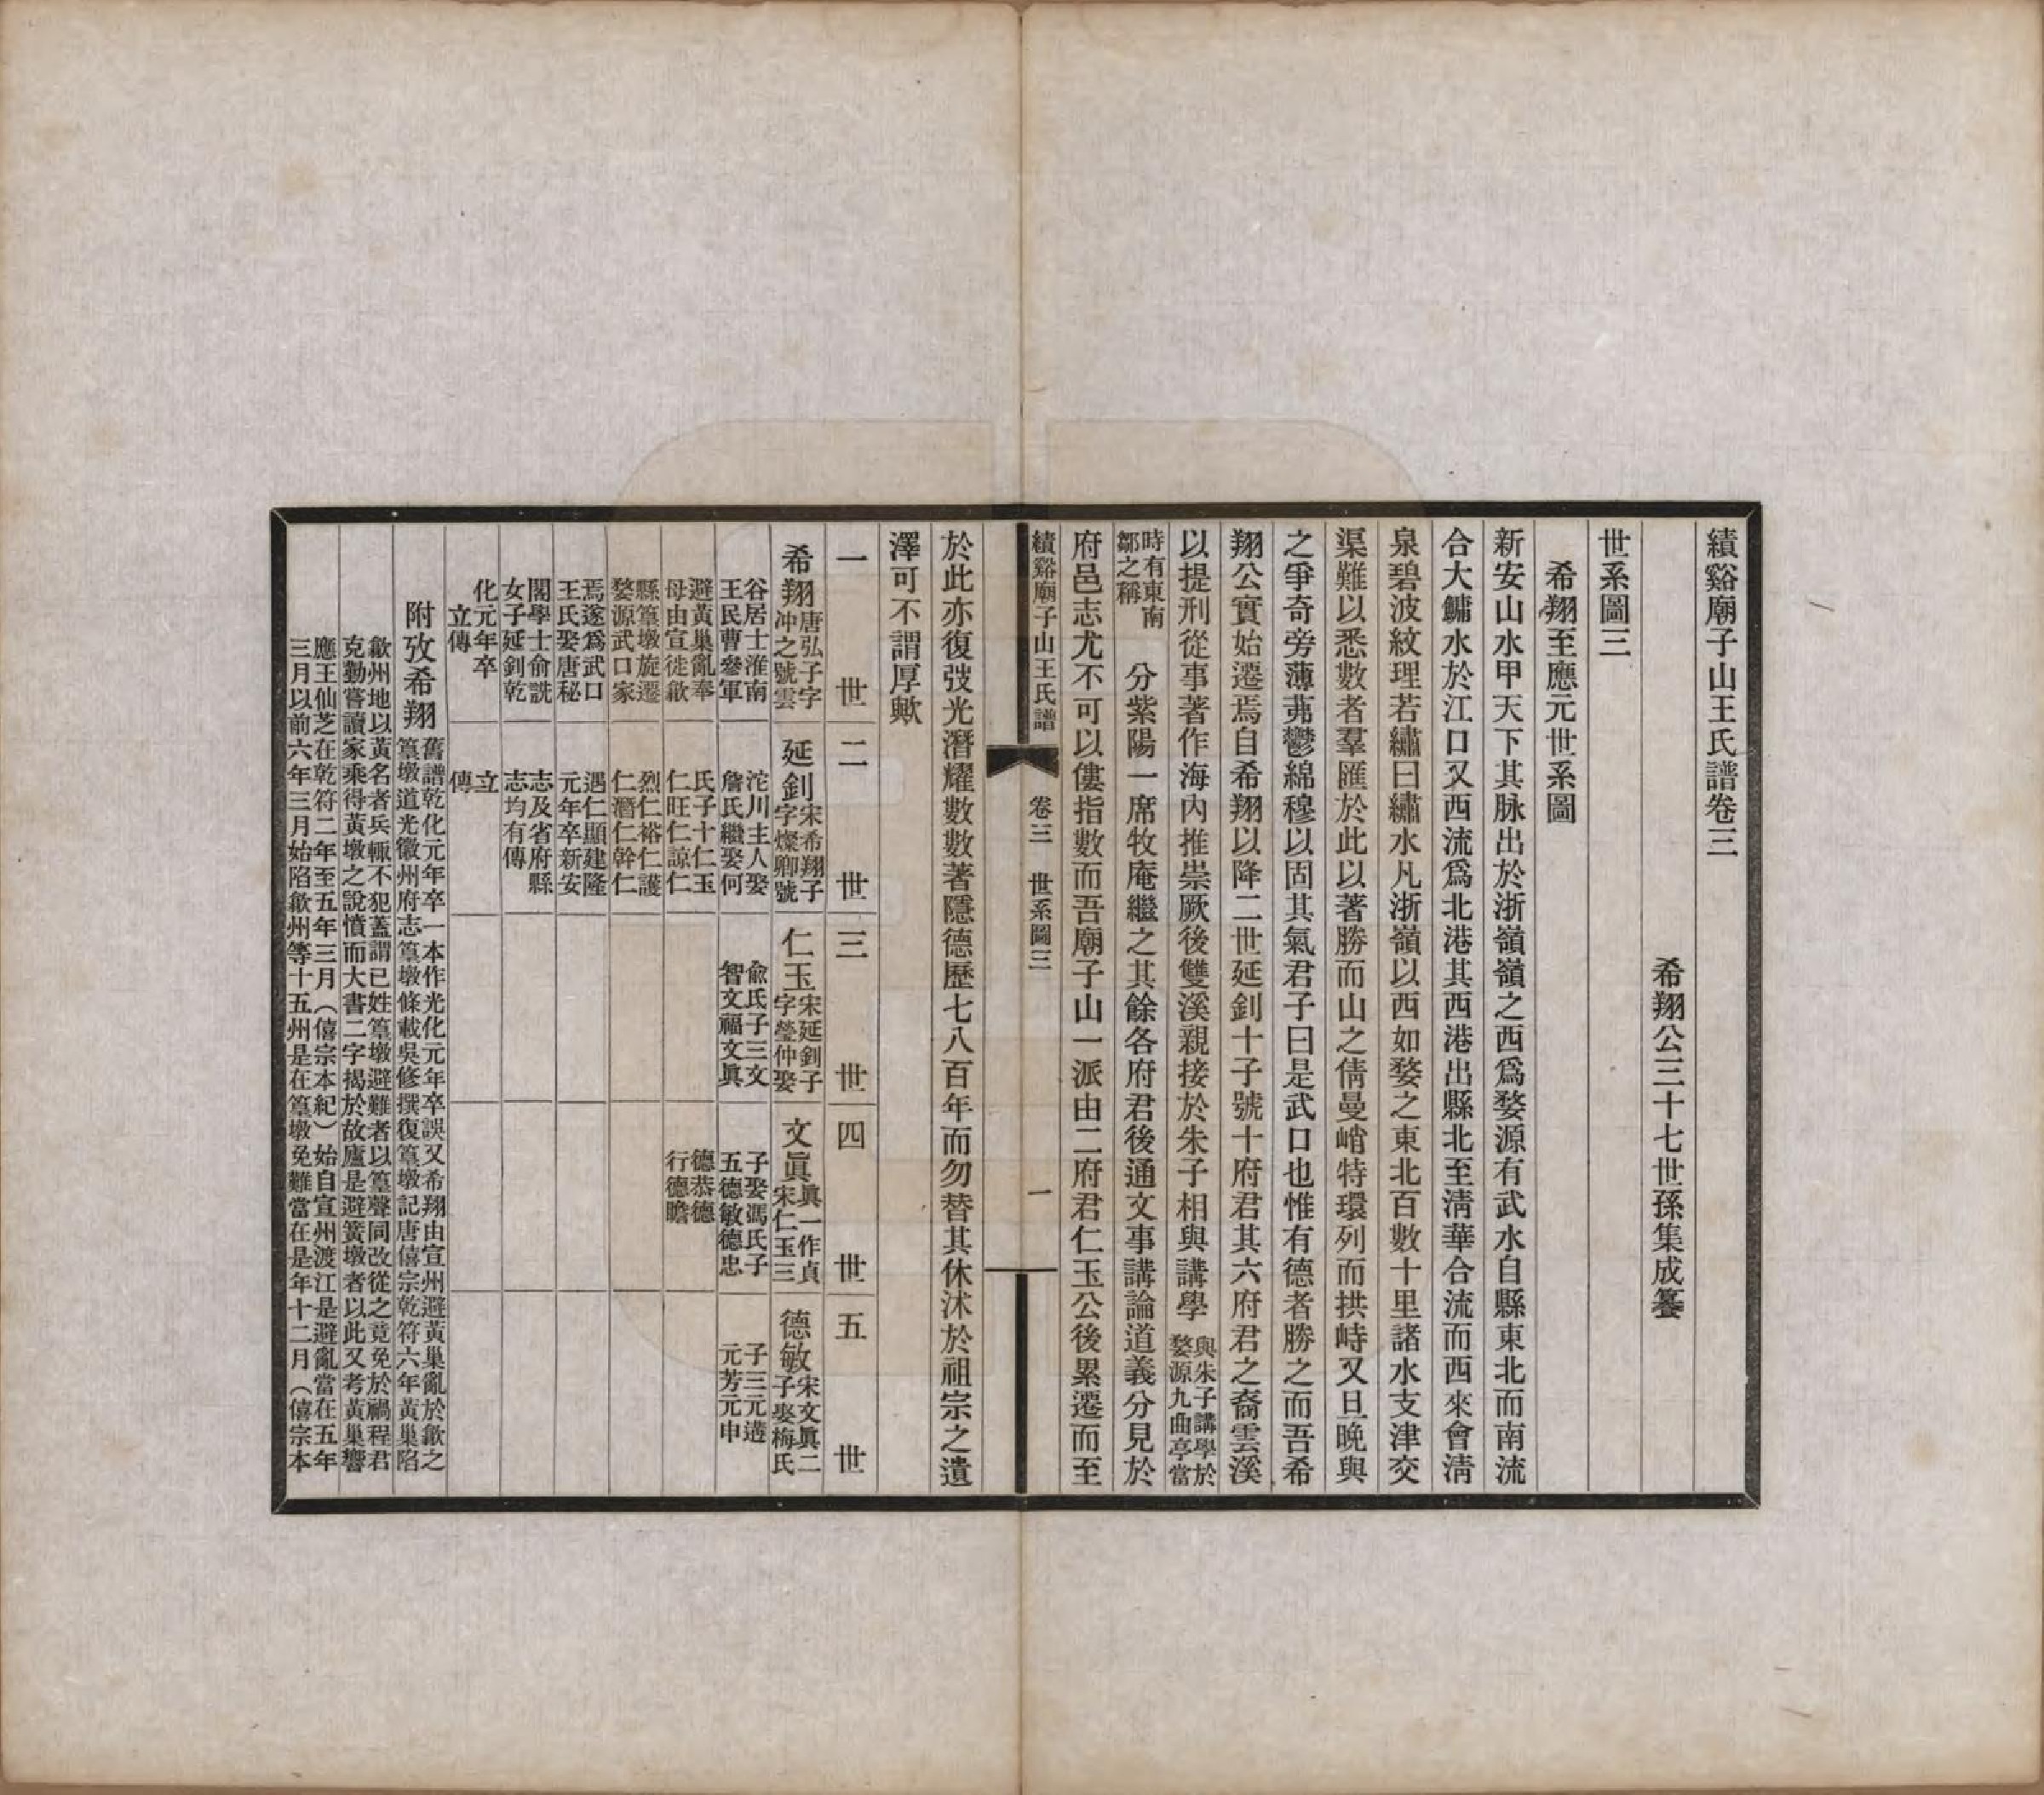 績谿廟子山王氏譜卷三
希翔公三十七世孫集成纂
世系圖三
希翔至應元世系圖
新安山水甲天下其脉出於浙嶺嶺之西爲婺源有武水自縣東北而南流
合大鱅水於江口又西流爲北港其西港出縣北至清華合流而西來會清
泉碧波紋理若繡曰繡水凡浙嶺以西如婺之東北百數十里諸水支津交
渠難以悉數者羣匯於此以著勝而山之倩曼峭特環列而拱峙又旦晚與
之爭奇旁薄茀鬱綿穆以固其氣君子曰是武口也惟有德者勝之而吾希
翔公實始遷焉自希翔以降二世延釗十子號十府君其六府君之裔雲溪
以提刑從事著作海內推崇厥後雙溪親接於朱子相與講學與朱子講學於婺源九曲亭當
時有東南鄒之稱　分紫陽一席牧庵繼之其餘各府君後通文事講論道義分見於
府邑志尤不可以僂指數而吾廟子山一派由二府君仁玉公後累遷而至
績谿廟子山王氏譜　卷三　世系圖三　一
於此亦復弢光潛耀數數著隱德歷七八百年而勿替其休沐於祖宗之遺
澤可不謂厚歟
一世　二世　三世　四世　五世
希翔唐弘子字冲之號雲
谷居士淮南王民曹參軍
避黃巢亂奉母由宣徙歙
縣篁墩旋遷婺源武口家
焉遂爲武口王氏娶唐秘
閣學士俞詵女子延釗乾
化元年卒立傳
延釗宋希翔子字燦卿號
沱川主人娶詹氏繼娶何
氏子十仁玉仁旺仁諒仁
烈仁裕仁護仁潛仁幹仁
遇仁顯建隆元年卒新安
志及省府縣志均有傳
立傳
仁玉宋延釗子字瑩仲娶
兪氏子三文智文福文眞
文眞眞一作貞宋仁玉三
子娶馮氏子五德敏德忠
德恭德行德瞻
德敏宋文眞二子娶梅氏
子三元遘元芳元申
附攷希翔舊譜乾化元年卒一本作光化元年卒誤又希翔由宣州避黃巢亂於歙之
篁墩道光徽州府志篁墩條載吳修撰復篁墩記唐僖宗乾符六年黃巢陷
歙州地以黃名者兵輒不犯蓋謂已姓篁墩避難者以篁聲同改從之竟免於禍程君
克勤嘗讀家乘得黃墩之說憤而大書二字揭於故廬是避篁墩者以此又考黃巢響
應王仙芝在乾符二年至五年三月（僖宗本紀）始自宣州渡江是避亂當在五年
三月以前六年三月始陷歙州等十五州是在篁墩免難當在是年十二月（僖宗本